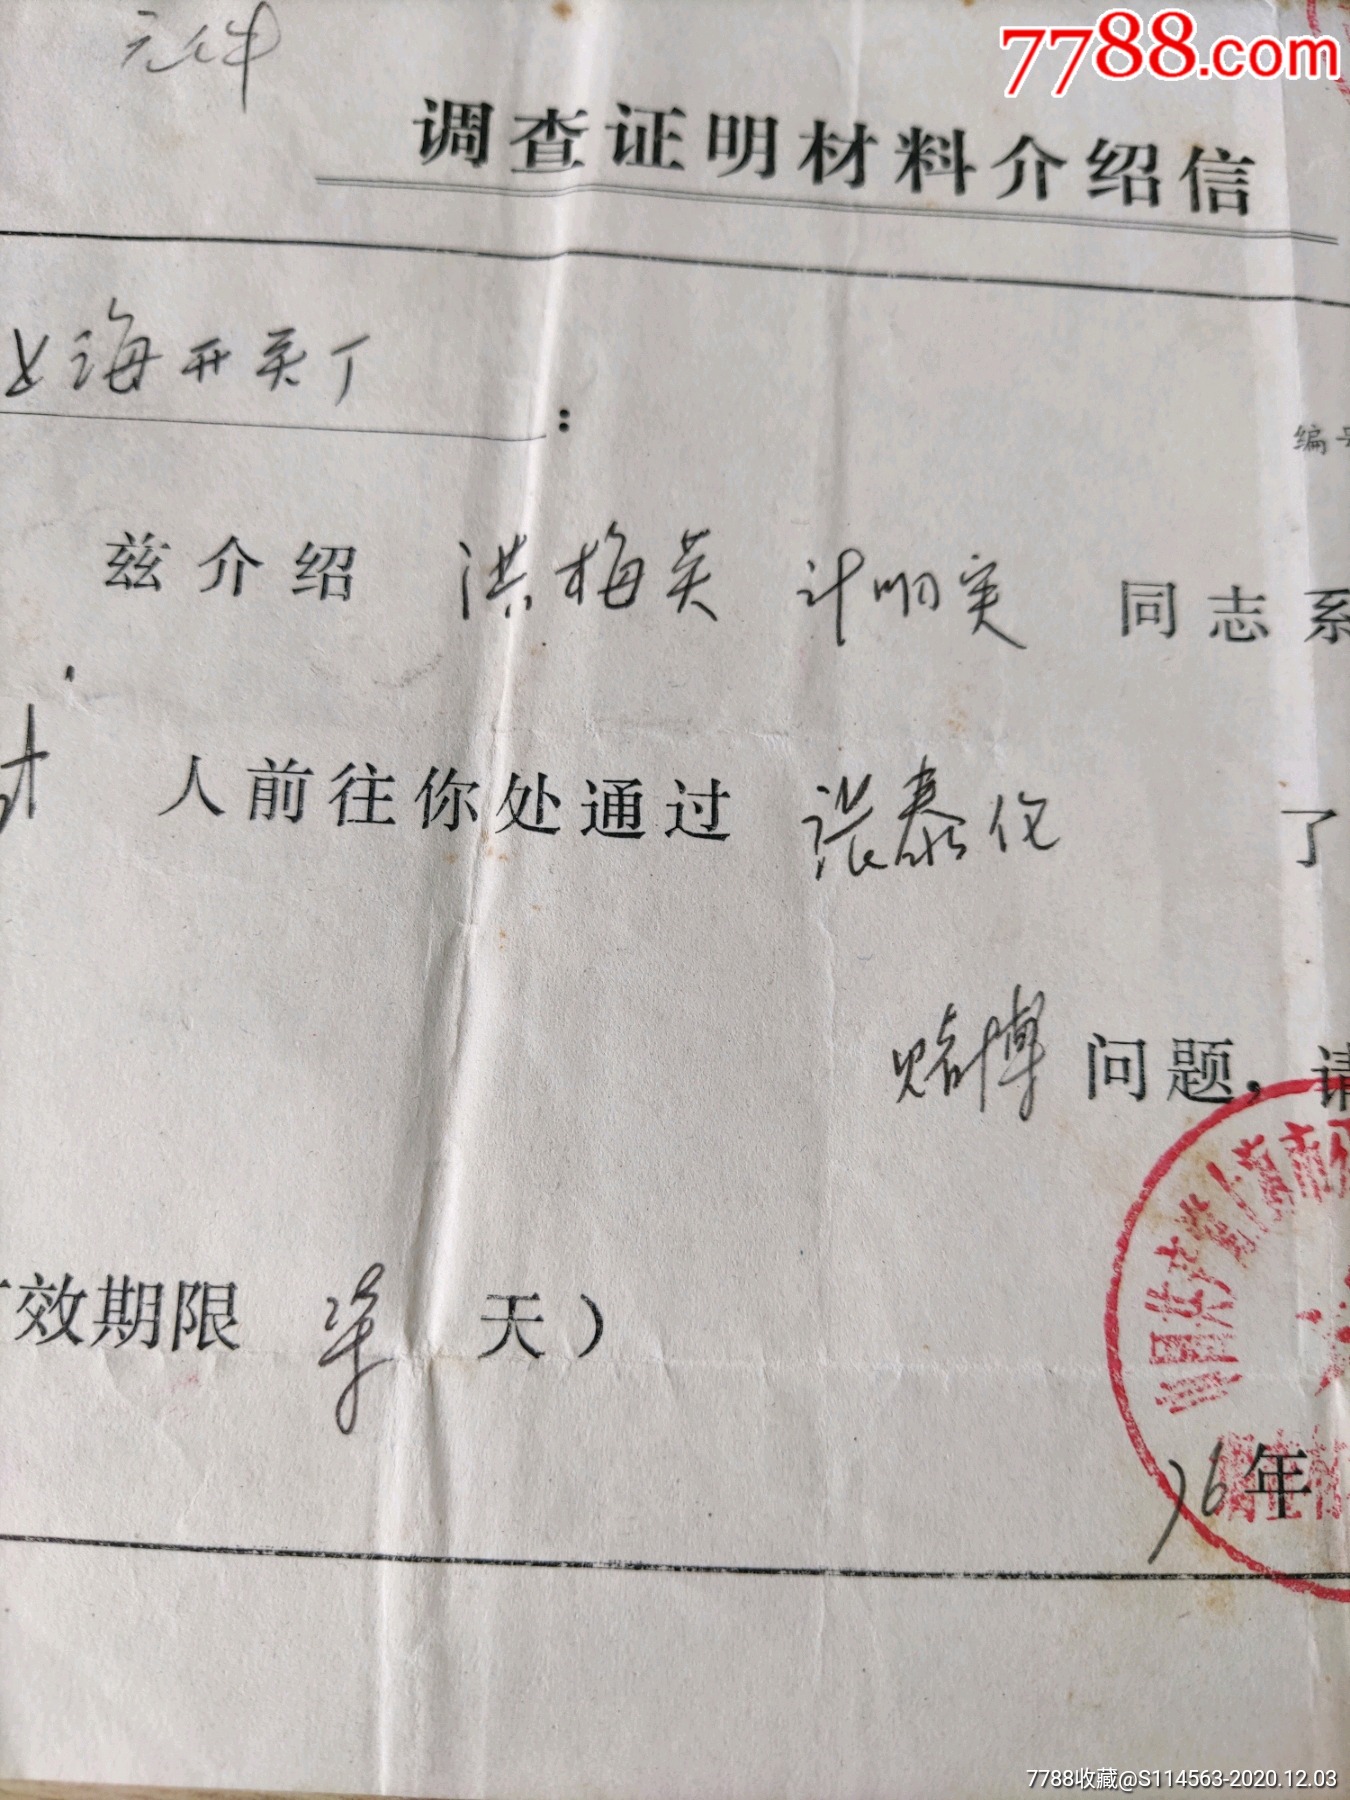 7788.com
元件
调查证明材料介绍信
上海开关厂
：
编号
兹介绍 洪梅英 计明实 同志系
人前往你处通过 张泰伦 了
赌博 问题，请
有效期限 天）
76年
7788收藏@S114563-2020.12.03